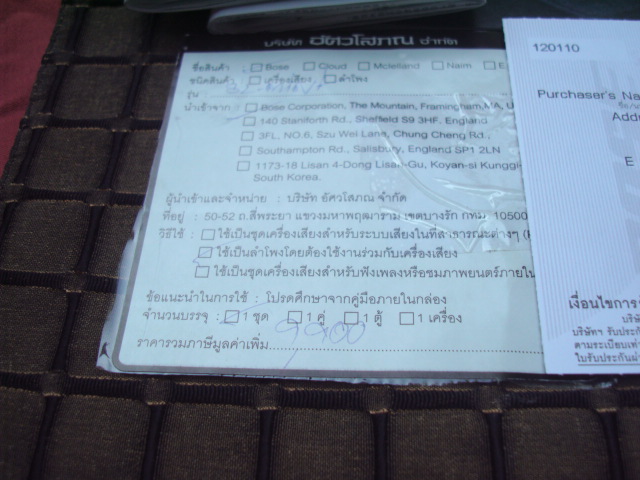 บริษัท อัศวโสภณ จำกัด
ชื่อสินค้า : Bose Cloud Mclelland Naim E
ชนิดสินค้า : เครื่องเสียง ลำโพง
รุ่น :
นำเข้าจาก : Bose Corporation, The Mountain, Framingham, MA, U
140 Staniforth Rd., Sheffield S9 3HF. England
3FL, NO.6, Szu Wei Lane, Chung Cheng Rd.,
Southampton Rd., Salisbury, England SP1 2LN
1173-18 Lisan 4-Dong Lisan-Gu, Koyan-si Kunggi-
South Korea.
ผู้นำเข้าและจำหน่าย : บริษัท อัศวโสภณ จำกัด
ที่อยู่ : 50-52 ถ.สี่พระยา แขวงมหาพฤฒาราม เขตบางรัก กทม. 10500
วิธีใช้ : ใช้เป็นชุดเครื่องเสียงสำหรับระบบเสียงในที่สาธารณะต่างๆ
ใช้เป็นลำโพงโดยต้องใช้งานร่วมกับเครื่องเสียง
ใช้เป็นชุดเครื่องเสียงสำหรับฟังเพลงหรือชมภาพยนตร์ภายใน
ข้อแนะนำในการใช้ : โปรดศึกษาจากคู่มือภายในกล่อง
จำนวนบรรจุ : 1 ชุด 1 คู่ 1 ตู้ 1 เครื่อง
9,900
ราคารวมภาษีมูลค่าเพิ่ม
120110
Purchaser's Na
Addr
E
เงื่อนไขการ
บริษั
บริษัทฯ รับประกั
ตามระเบียบเท่า
ใบรับประกันฝ่า